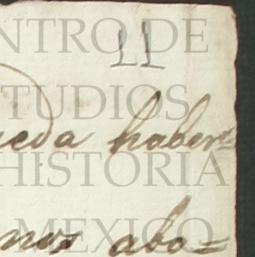 NTRO DE
11
STUDIOS
ueda haber=
HISTORIA
MEXICO
nos abo=